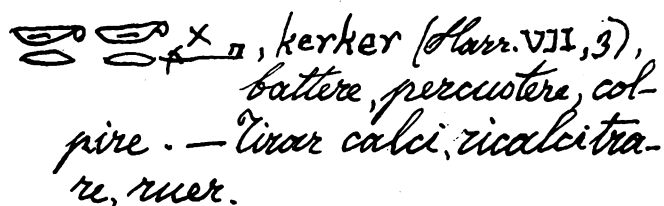 𓎡𓂋𓎡𓂋𓏴𓂡, kerker (Harr. VII, 3),
battere, percuotere, col-
pire. — Tirar calci, ricalcitra-
re, ruer.